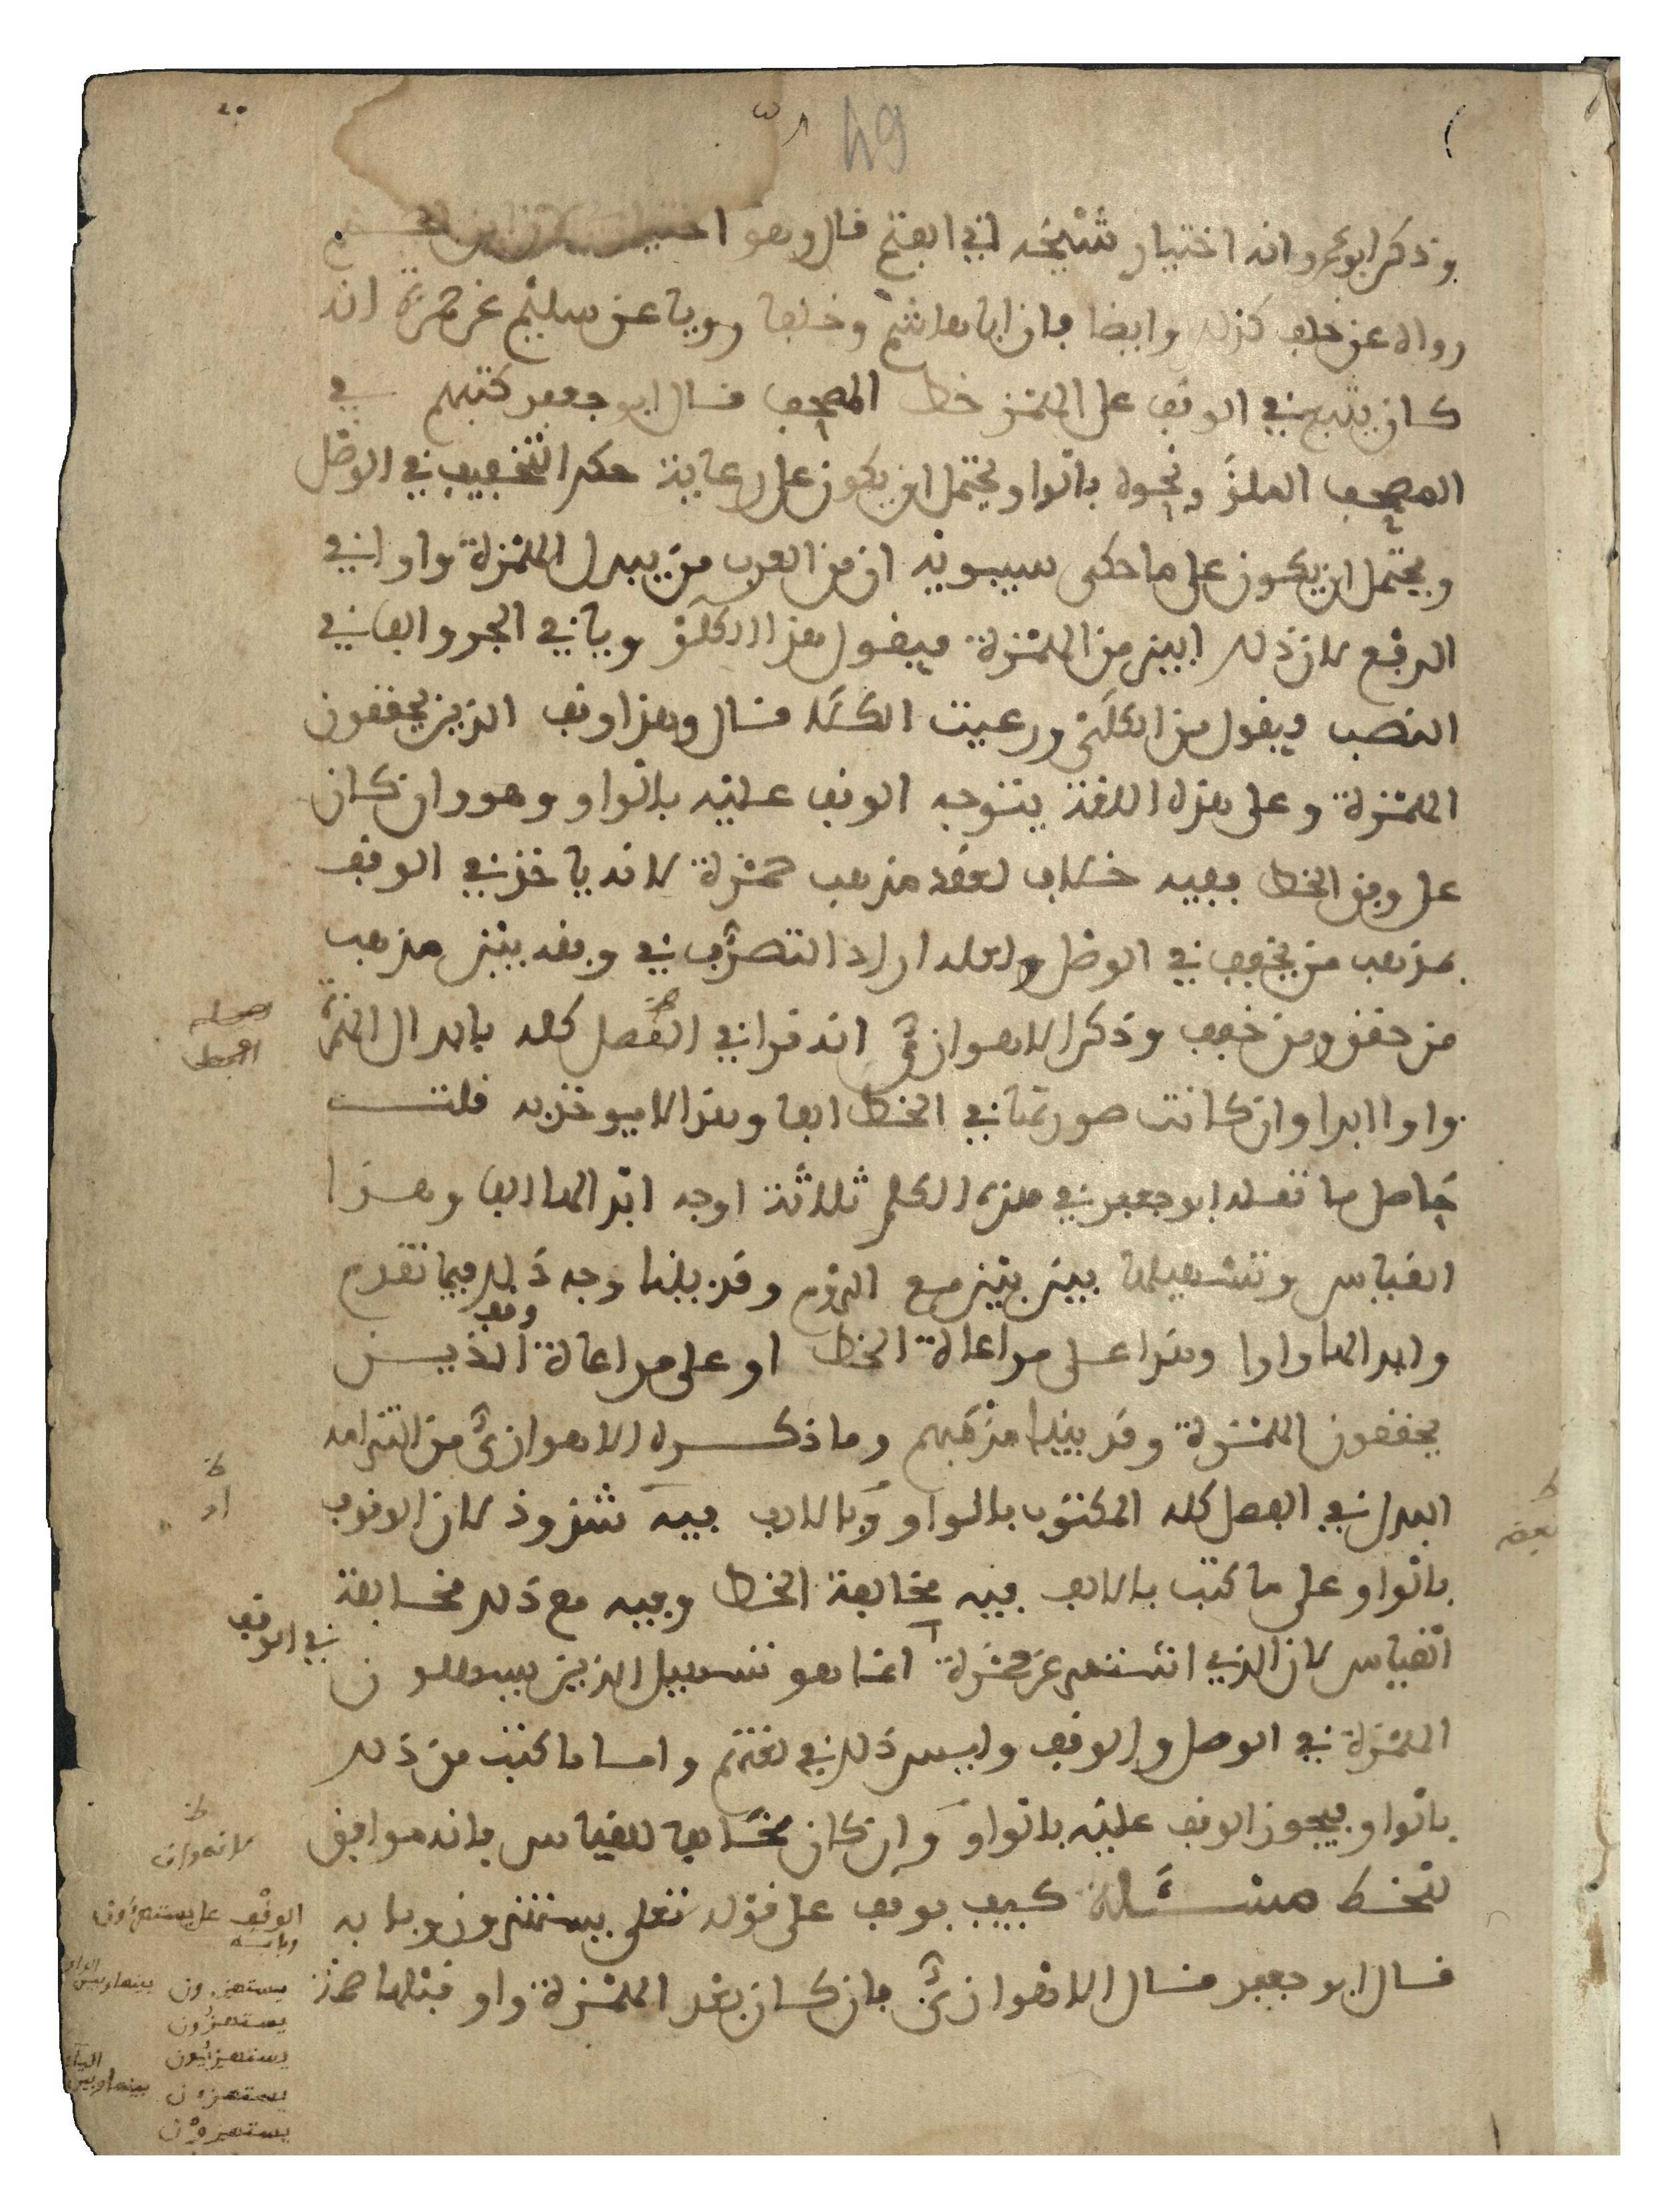 49
وذكر ابو عمرو انه اختيار شيخه ابي الفتح قال وهو
رواه عن خلف كذلك وايضا فان ابا هاشم وخلفا رويا عن سليم عن حمزة انه
كان يتبع في الوقف على الهمز خط المصحف قال ابو جعفر كتبهم في
المصحف الملؤ ونحوه بالواو يحتمل ان يكون على رعاية حكم التخفيف في الوصل
ويحتمل ان يكون على ما حكى سيبويه ان من العرب من يبدل الهمزة واوا في
الرفع لان ذلك ابين من الهمزة فيقول هذا الكلؤ ويا في الجر والفا في
النصب ويقول من الكلئ ورعيت الكلا قال وهذا وقف الذين يحققون
الهمزة وعلى هذه اللغة يتوجه الوقف عليه بالواو وهو وان كان
على وفق الخط ففيه خلاف لعقد مذهب حمزة لانه ياخذ في الوقف
بمذهب من يخفف في الوصل ولعله اراد التصرف في وقفه بين مذهب
من حقق ومن خفف وذكر الاهوازي انه قرا في الفصل كله بابدال الهمزة
واوا ابدا وان كانت صورتها في الخط الفا وهذا لا يوخذ به قلت
حاصل ما نقله ابو جعفر في هذه الكلم ثلاثة اوجه ابدالها الفا وهذا
القياس وتسهيلها بين بين مع الروم وقد بينا وجه ذلك فيما تقدم
وابدالها واوا وهذا على مراعاة الخط او على مراعاة وقف الذين
يحققون الهمزة وقد بينا مذهبهم وما ذكره الاهوازي من التزامه
البدل في الفصل كله المكتوب بالواو وبالالف فيه شذوذ لان الوقوف
بالواو على ما كتب بالالف فيه مخالفة الخط وفيه مع ذلك مخالفة
القياس لان الذي اشتهر عن حمزة انما هو تسهيل الذين يسهلون
في الوقف
الهمزة في الوصل والوقف وليس ذلك في لغتهم واما ما كتب من ذلك
بالواو فيجوز الوقف عليه بالواو وان كان مخالفا للقياس فانه موافق
للخط مسئلة كيف يوقف على قوله تعلى يستهزون وبابه
قال ابو جعفر قال الاهوازي فان كان بعد الهمزة واو قبلها همز
الوقف على يستهزؤن
وبابه
يستهزون بينها وبين الواو
يستهزون
يستهزيون
يستهزون بينها وبين الياء
يستهزون